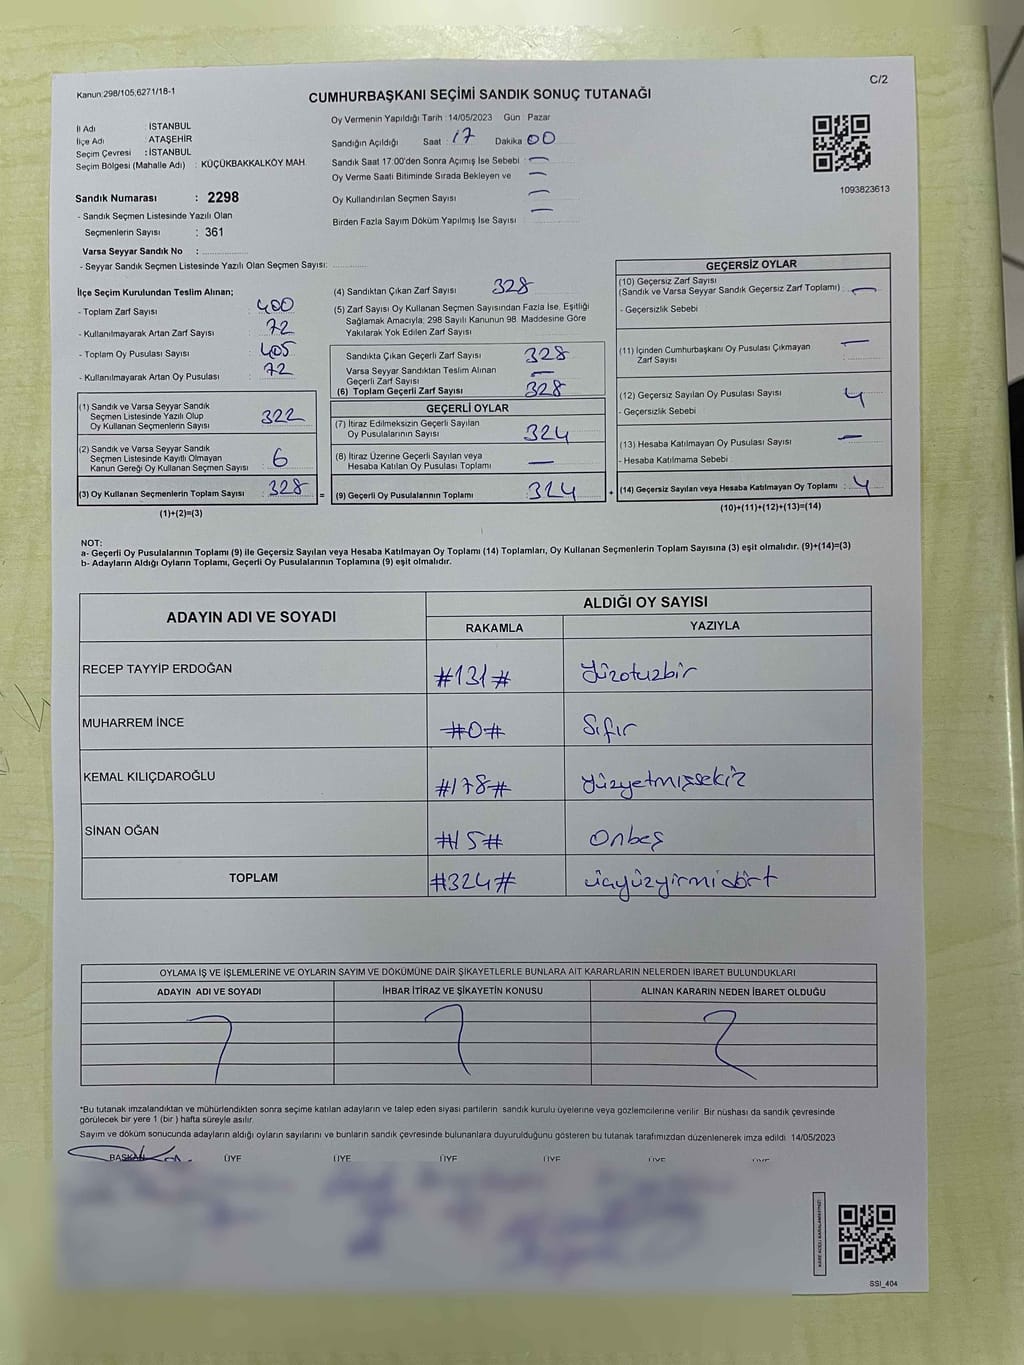 Kanun:298/105;6271/18-1
C/2
CUMHURBAŞKANI SEÇİMİ SANDIK SONUÇ TUTANAĞI
İl Adı : İSTANBUL
İlçe Adı : ATAŞEHİR
Seçim Çevresi : İSTANBUL
Seçim Bölgesi (Mahalle Adı) : KÜÇÜKBAKKALKÖY MAH.
Sandık Numarası : 2298
- Sandık Seçmen Listesinde Yazılı Olan
Seçmenlerin Sayısı : 361
Varsa Seyyar Sandık No :
- Seyyar Sandık Seçmen Listesinde Yazılı Olan Seçmen Sayısı:
Oy Vermenin Yapıldığı Tarih : 14/05/2023 Gün : Pazar
Sandığın Açıldığı Saat : 17 Dakika : 00
Sandık Saat 17:00'den Sonra Açılmış İse Sebebi : —
Oy Verme Saati Bitiminde Sırada Bekleyen ve —
Oy Kullandırılan Seçmen Sayısı : —
Birden Fazla Sayım Döküm Yapılmış İse Sayısı : —
1093823613
İlçe Seçim Kurulundan Teslim Alınan;
- Toplam Zarf Sayısı : 400
- Kullanılmayarak Artan Zarf Sayısı : 72
- Toplam Oy Pusulası Sayısı : 405
- Kullanılmayarak Artan Oy Pusulası : 72
(1) Sandık ve Varsa Seyyar Sandık
Seçmen Listesinde Yazılı Olup
Oy Kullanan Seçmenlerin Sayısı : 322
(2) Sandık ve Varsa Seyyar Sandık
Seçmen Listesinde Kayıtlı Olmayan
Kanun Gereği Oy Kullanan Seçmen Sayısı : 6
(3) Oy Kullanan Seçmenlerin Toplam Sayısı : 328 =
(1)+(2)=(3)
(4) Sandıktan Çıkan Zarf Sayısı : 328
(5) Zarf Sayısı Oy Kullanan Seçmen Sayısından Fazla İse, Eşitliği
Sağlamak Amacıyla, 298 Sayılı Kanunun 98. Maddesine Göre
Yakılarak Yok Edilen Zarf Sayısı
Sandıkta Çıkan Geçerli Zarf Sayısı : 328
Varsa Seyyar Sandıktan Teslim Alınan
Geçerli Zarf Sayısı : —
(6) Toplam Geçerli Zarf Sayısı : 328
GEÇERLİ OYLAR
(7) İtiraz Edilmeksizin Geçerli Sayılan
Oy Pusulalarının Sayısı : 324
(8) İtiraz Üzerine Geçerli Sayılan veya
Hesaba Katılan Oy Pusulası Toplamı : —
(9) Geçerli Oy Pusulalarının Toplamı : 324 +
GEÇERSİZ OYLAR
(10) Geçersiz Zarf Sayısı
(Sandık ve Varsa Seyyar Sandık Geçersiz Zarf Toplamı) : —
- Geçersizlik Sebebi
(11) İçinden Cumhurbaşkanı Oy Pusulası Çıkmayan : —
Zarf Sayısı
(12) Geçersiz Sayılan Oy Pusulası Sayısı : 4
- Geçersizlik Sebebi
(13) Hesaba Katılmayan Oy Pusulası Sayısı : —
- Hesaba Katılmama Sebebi
(14) Geçersiz Sayılan veya Hesaba Katılmayan Oy Toplamı : 4
(10)+(11)+(12)+(13)=(14)
NOT:
a- Geçerli Oy Pusulalarının Toplamı (9) ile Geçersiz Sayılan veya Hesaba Katılmayan Oy Toplamı (14) Toplamları, Oy Kullanan Seçmenlerin Toplam Sayısına (3) eşit olmalıdır. (9)+(14)=(3)
b- Adayların Aldığı Oyların Toplamı, Geçerli Oy Pusulalarının Toplamına (9) eşit olmalıdır.
ADAYIN ADI VE SOYADI ALDIĞI OY SAYISI
RAKAMLA YAZIYLA
RECEP TAYYİP ERDOĞAN #131# yüzotuzbir
MUHARREM İNCE #0# Sıfır
KEMAL KILIÇDAROĞLU #178# yüzyetmişsekiz
SİNAN OĞAN #15# Onbeş
TOPLAM #324# üçyüzyirmidört
OYLAMA İŞ VE İŞLEMLERİNE VE OYLARIN SAYIM VE DÖKÜMÜNE DAİR ŞİKAYETLERLE BUNLARA AİT KARARLARIN NELERDEN İBARET BULUNDUKLARI
ADAYIN ADI VE SOYADI İHBAR İTİRAZ VE ŞİKAYETİN KONUSU ALINAN KARARIN NEDEN İBARET OLDUĞU
*Bu tutanak imzalandıktan ve mühürlendikten sonra seçime katılan adayların ve talep eden siyasi partilerin sandık kurulu üyelerine veya gözlemcilerine verilir. Bir nüshası da sandık çevresinde
görülecek bir yere 1 (bir) hafta süreyle asılır.
Sayım ve döküm sonucunda adayların aldığı oyların sayılarını ve bunların sandık çevresinde bulunanlara duyurulduğunu gösteren bu tutanak tarafımızdan düzenlenerek imza edildi. 14/05/2023
BAŞKAN ÜYE ÜYE ÜYE ÜYE ÜYE ÜYE
SSI_404